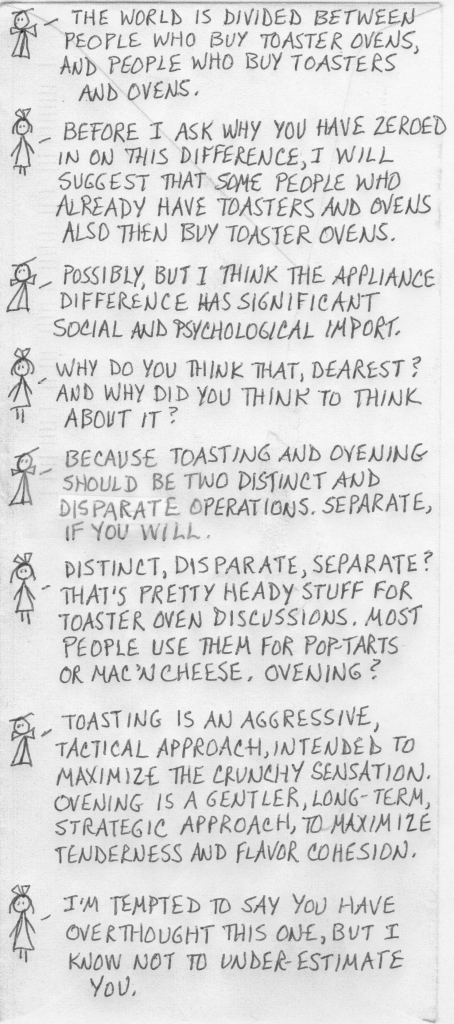 THE WORLD IS DIVIDED BETWEEN
PEOPLE WHO BUY TOASTER OVENS,
AND PEOPLE WHO BUY TOASTERS
AND OVENS.
BEFORE I ASK WHY YOU HAVE ZEROED
IN ON THIS DIFFERENCE, I WILL
SUGGEST THAT SOME PEOPLE WHO
ALREADY HAVE TOASTERS AND OVENS
ALSO THEN BUY TOASTER OVENS.
POSSIBLY, BUT I THINK THE APPLIANCE
DIFFERENCE HAS SIGNIFICANT
SOCIAL AND PSYCHOLOGICAL IMPORT.
WHY DO YOU THINK THAT, DEAREST?
AND WHY DID YOU THINK TO THINK
ABOUT IT?
BECAUSE TOASTING AND OVENING
SHOULD BE TWO DISTINCT AND
DISPARATE OPERATIONS. SEPARATE,
IF YOU WILL.
DISTINCT, DISPARATE, SEPARATE?
THAT'S PRETTY HEADY STUFF FOR
TOASTER OVEN DISCUSSIONS. MOST
PEOPLE USE THEM FOR POP-TARTS
OR MAC 'N CHEESE. OVENING?
TOASTING IS AN AGGRESSIVE,
TACTICAL APPROACH, INTENDED TO
MAXIMIZE THE CRUNCHY SENSATION.
OVENING IS A GENTLER, LONG-TERM,
STRATEGIC APPROACH, TO MAXIMIZE
TENDERNESS AND FLAVOR COHESION.
I'M TEMPTED TO SAY YOU HAVE
OVERTHOUGHT THIS ONE, BUT I
KNOW NOT TO UNDER-ESTIMATE
YOU.